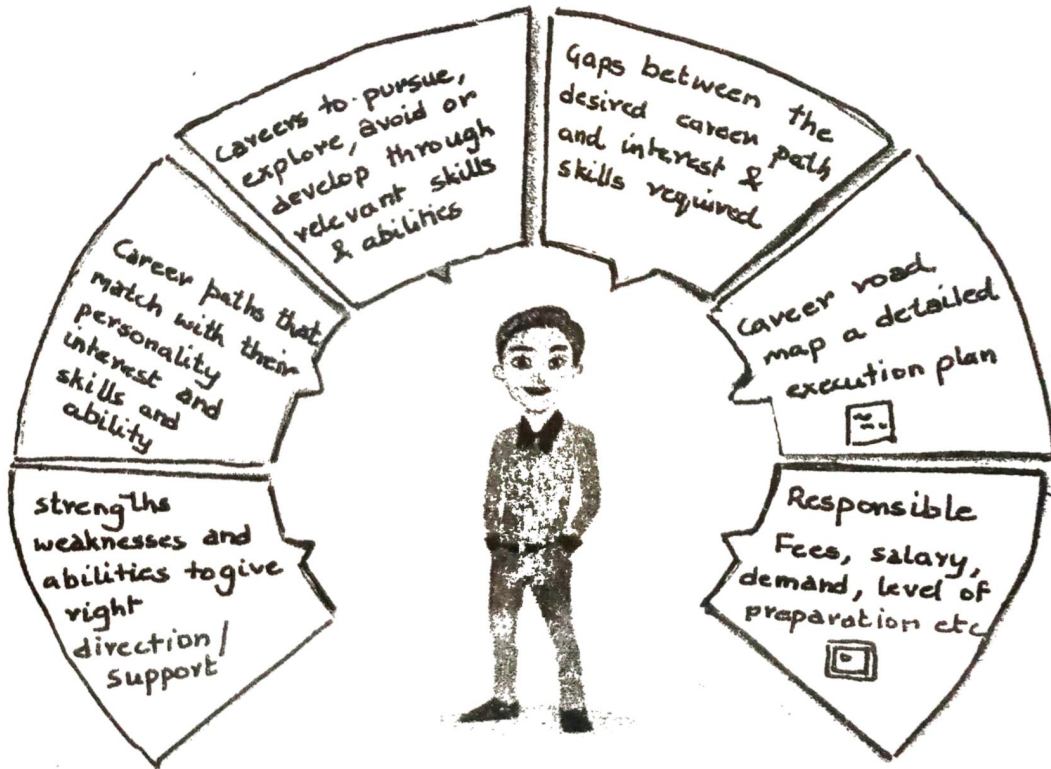 strengths
weaknesses and
abilities to give
right
direction/
support
Career paths that
match with their
personality
interest and
skills and
ability
Careers to pursue,
explore, avoid or
develop through
relevant skills
& abilities
Gaps between the
desired career path
and interest &
skills required
Career road
map a detailed
execution plan
Responsible
Fees, salary,
demand, level of
preparation etc